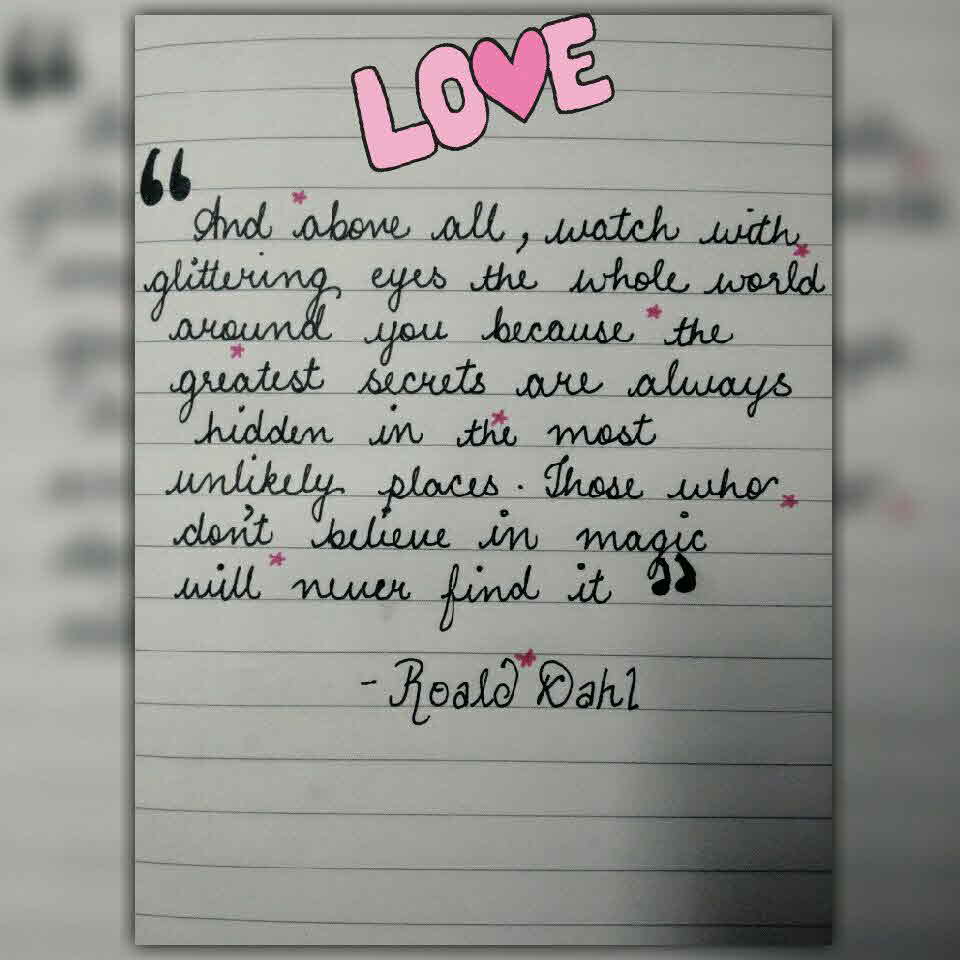 LOVE
“ And above all, watch with
glittering eyes the whole world
around you because the
greatest secrets are always
hidden in the most
unlikely places. Those who
don't believe in magic
will never find it ”
- Roald Dahl